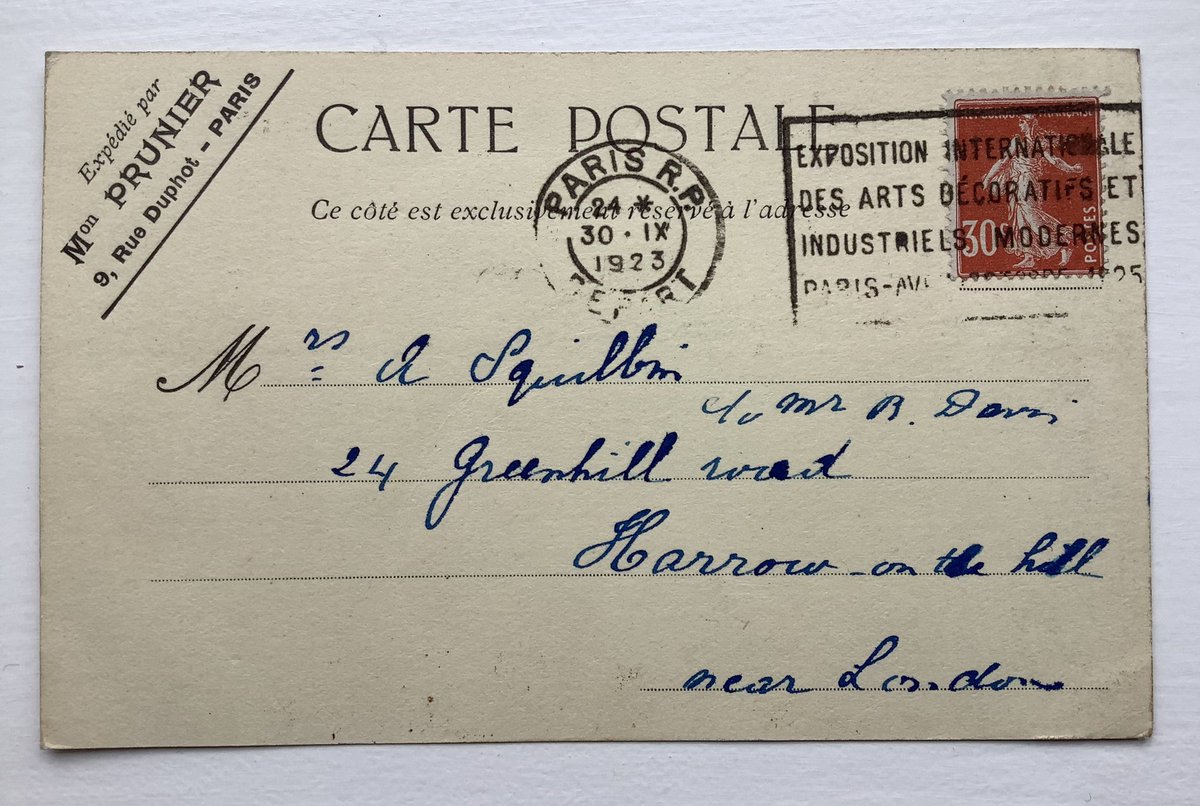 Expédié par
Mon PRUNIER
9, Rue Duphot - PARIS
CARTE POSTALE
Ce côté est exclusivement réservé à l'adresse
PARIS R.P.
24 *
30 · IX
1923
DEPART
EXPOSITION INTERNATIONALE
DES ARTS DÉCORATIFS ET
INDUSTRIELS MODERNES
PARIS-AV 1925
30
POSTES
Mrs A Squilbin
c/o Mr R. Davis
24 Greenhill road
Harrow-on the hill
near London